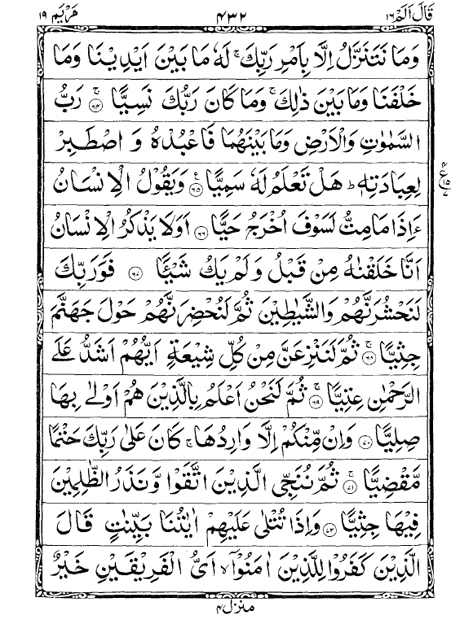 قَالَ اَلَمْ ١٦ ٤٣٢ مَرْيَم ١٩
وَمَا نَتَنَزَّلُ اِلَّا بِاَمْرِ رَبِّكَ ۚ لَهٗ مَا بَيْنَ اَيْدِيْنَا وَمَا
خَلْفَنَا وَمَا بَيْنَ ذٰلِكَ ۚ وَمَا كَانَ رَبُّكَ نَسِيًّا ۚ ﴿٦٤﴾ رَبُّ
السَّمٰوٰتِ وَالْاَرْضِ وَمَا بَيْنَهُمَا فَاعْبُدْهُ وَ اصْطَبِرْ
لِعِبَادَتِهٖ ؕ هَلْ تَعْلَمُ لَهٗ سَمِيًّا ۠ ﴿٦٥﴾ وَيَقُوْلُ الْاِنْسَانُ
ءَاِذَا مَامِتُّ لَسَوْفَ اُخْرَجُ حَيًّا ﴿٦٦﴾ اَوَلَا يَذْكُرُ الْاِنْسَانُ
اَنَّا خَلَقْنٰهُ مِنْ قَبْلُ وَلَمْ يَكُ شَيْـًٔا ﴿٦٧﴾ فَوَرَبِّكَ
لَنَحْشُرَنَّهُمْ وَالشَّيٰطِيْنَ ثُمَّ لَنُحْضِرَنَّهُمْ حَوْلَ جَهَنَّمَ
جِثِيًّا ۚ ﴿٦٨﴾ ثُمَّ لَنَنْزِعَنَّ مِنْ كُلِّ شِيْعَةٍ اَيُّهُمْ اَشَدُّ عَلَى
الرَّحْمٰنِ عِتِيًّا ۚ ﴿٦٩﴾ ثُمَّ لَنَحْنُ اَعْلَمُ بِالَّذِيْنَ هُمْ اَوْلٰى بِهَا
صِلِيًّا ﴿٧٠﴾ وَاِنْ مِّنْكُمْ اِلَّا وَارِدُهَا ۚ كَانَ عَلٰى رَبِّكَ حَتْمًا
مَّقْضِيًّا ۚ ﴿٧١﴾ ثُمَّ نُنَجِّى الَّذِيْنَ اتَّقَوْا وَّنَذَرُ الظّٰلِمِيْنَ
فِيْهَا جِثِيًّا ﴿٧٢﴾ وَاِذَا تُتْلٰى عَلَيْهِمْ اٰيٰتُنَا بَيِّنٰتٍ قَالَ
الَّذِيْنَ كَفَرُوْا لِلَّذِيْنَ اٰمَنُوْۤا ۙ اَىُّ الْفَرِيْقَيْنِ خَيْرٌ
منزل ٤